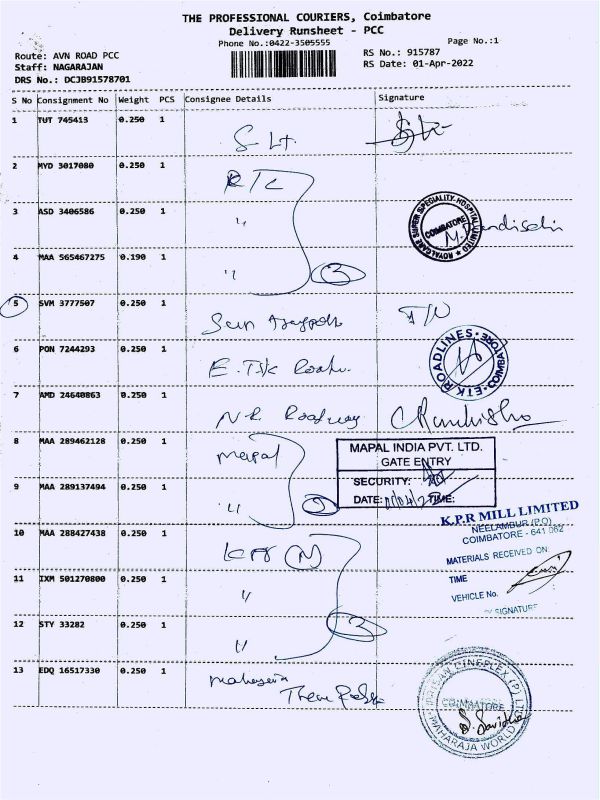 THE PROFESSIONAL COURIERS, Coimbatore
Delivery Runsheet - PCC
Phone No.:0422-3505555
Page No.:1
Route: AVN ROAD PCC
Staff: NAGARAJAN
DRS No.: DCJB91578701
RS No.: 915787
RS Date: 01-Apr-2022
S No Consignment No Weight PCS Consignee Details Signature
1 TUT 745413 0.250 1
2 MYD 3017080 0.250 1
3 ASD 3406586 0.250 1 "
ROYAL CARE SUPER SPECIALITY HOSPITAL LIMITED
COIMBATORE
4 MAA 565467275 0.190 1 " 3
5 SVM 3777507 0.250 1
6 PON 7244293 0.250 1 E.
ETK ROADLINES COIMBATORE
7 AMD 24640863 0.250 1 N.R. Roadway
8 MAA 289462128 0.250 1 mapal
MAPAL INDIA PVT. LTD.
GATE ENTRY
SECURITY:
DATE: TIME:
9 MAA 289137494 0.250 1 "
K.P.R MILL LIMITED
NEELAMBUR (P.O)
COIMBATORE - 641 062
MATERIALS RECEIVED ON:
TIME
VEHICLE No.
SIGNATURE
10 MAA 288427438 0.250 1
11 IXM 501270800 0.250 1 "
12 STY 33282 0.250 1 " 3
13 EDQ 16517330 0.250 1
CINEPLEX (P) LTD
COIMBATORE
MAHARAJA WORLD